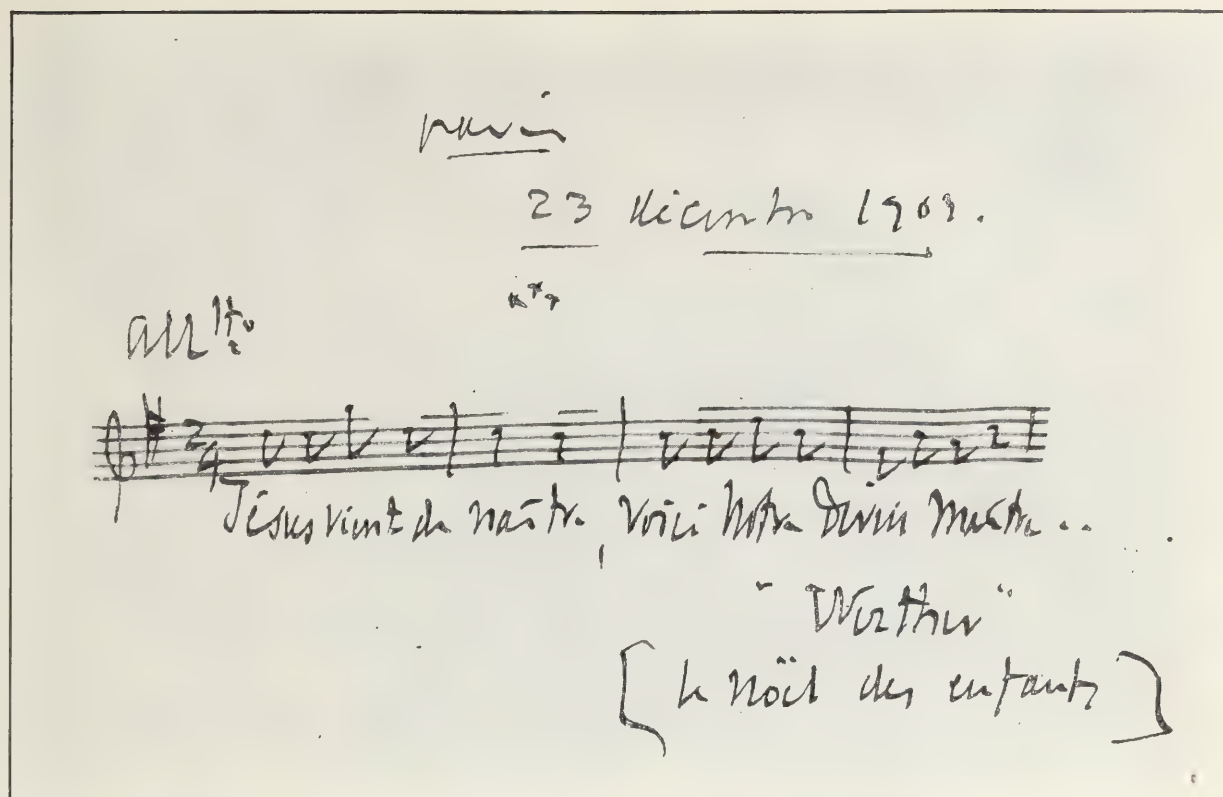 paris
23 décembre 1909.
All tto
2
4
Jésus vient de naître, voici Notre divin Maître ..
"Werther"
[le Noël des enfants]